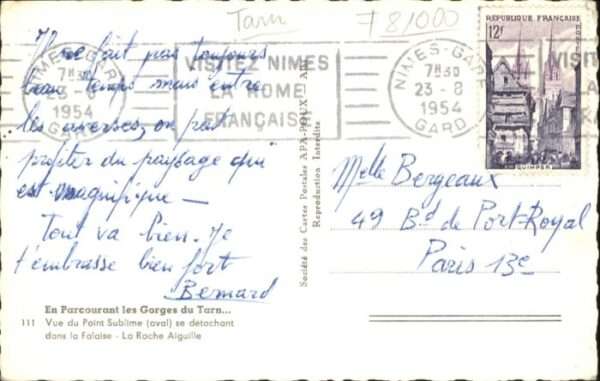 Tarn 781000
Il ne fait pas toujours
beau temps mais entre
les averses, on peut
profiter du paysage qui
est magnifique —
Tout va bien. Je
t'embrasse bien fort
Bernard
En Parcourant les Gorges du Tarn...
111 Vue du Point Sublime (aval) se détachant
dans la Falaise - La Roche Aiguille
NIMES-GARE
7H30
23-8
1954
GARD
VISITEZ NIMES
LA ROME
FRANÇAISE
Société des Cartes Postales APA-POUX
Reproduction Interdite
NIMES-GARE
7H30
23-8
1954
GARD
REPUBLIQUE FRANÇAISE
12f
QUIMPER
Melle Bergeaux
49 Bd de Port-Royal
Paris 13e